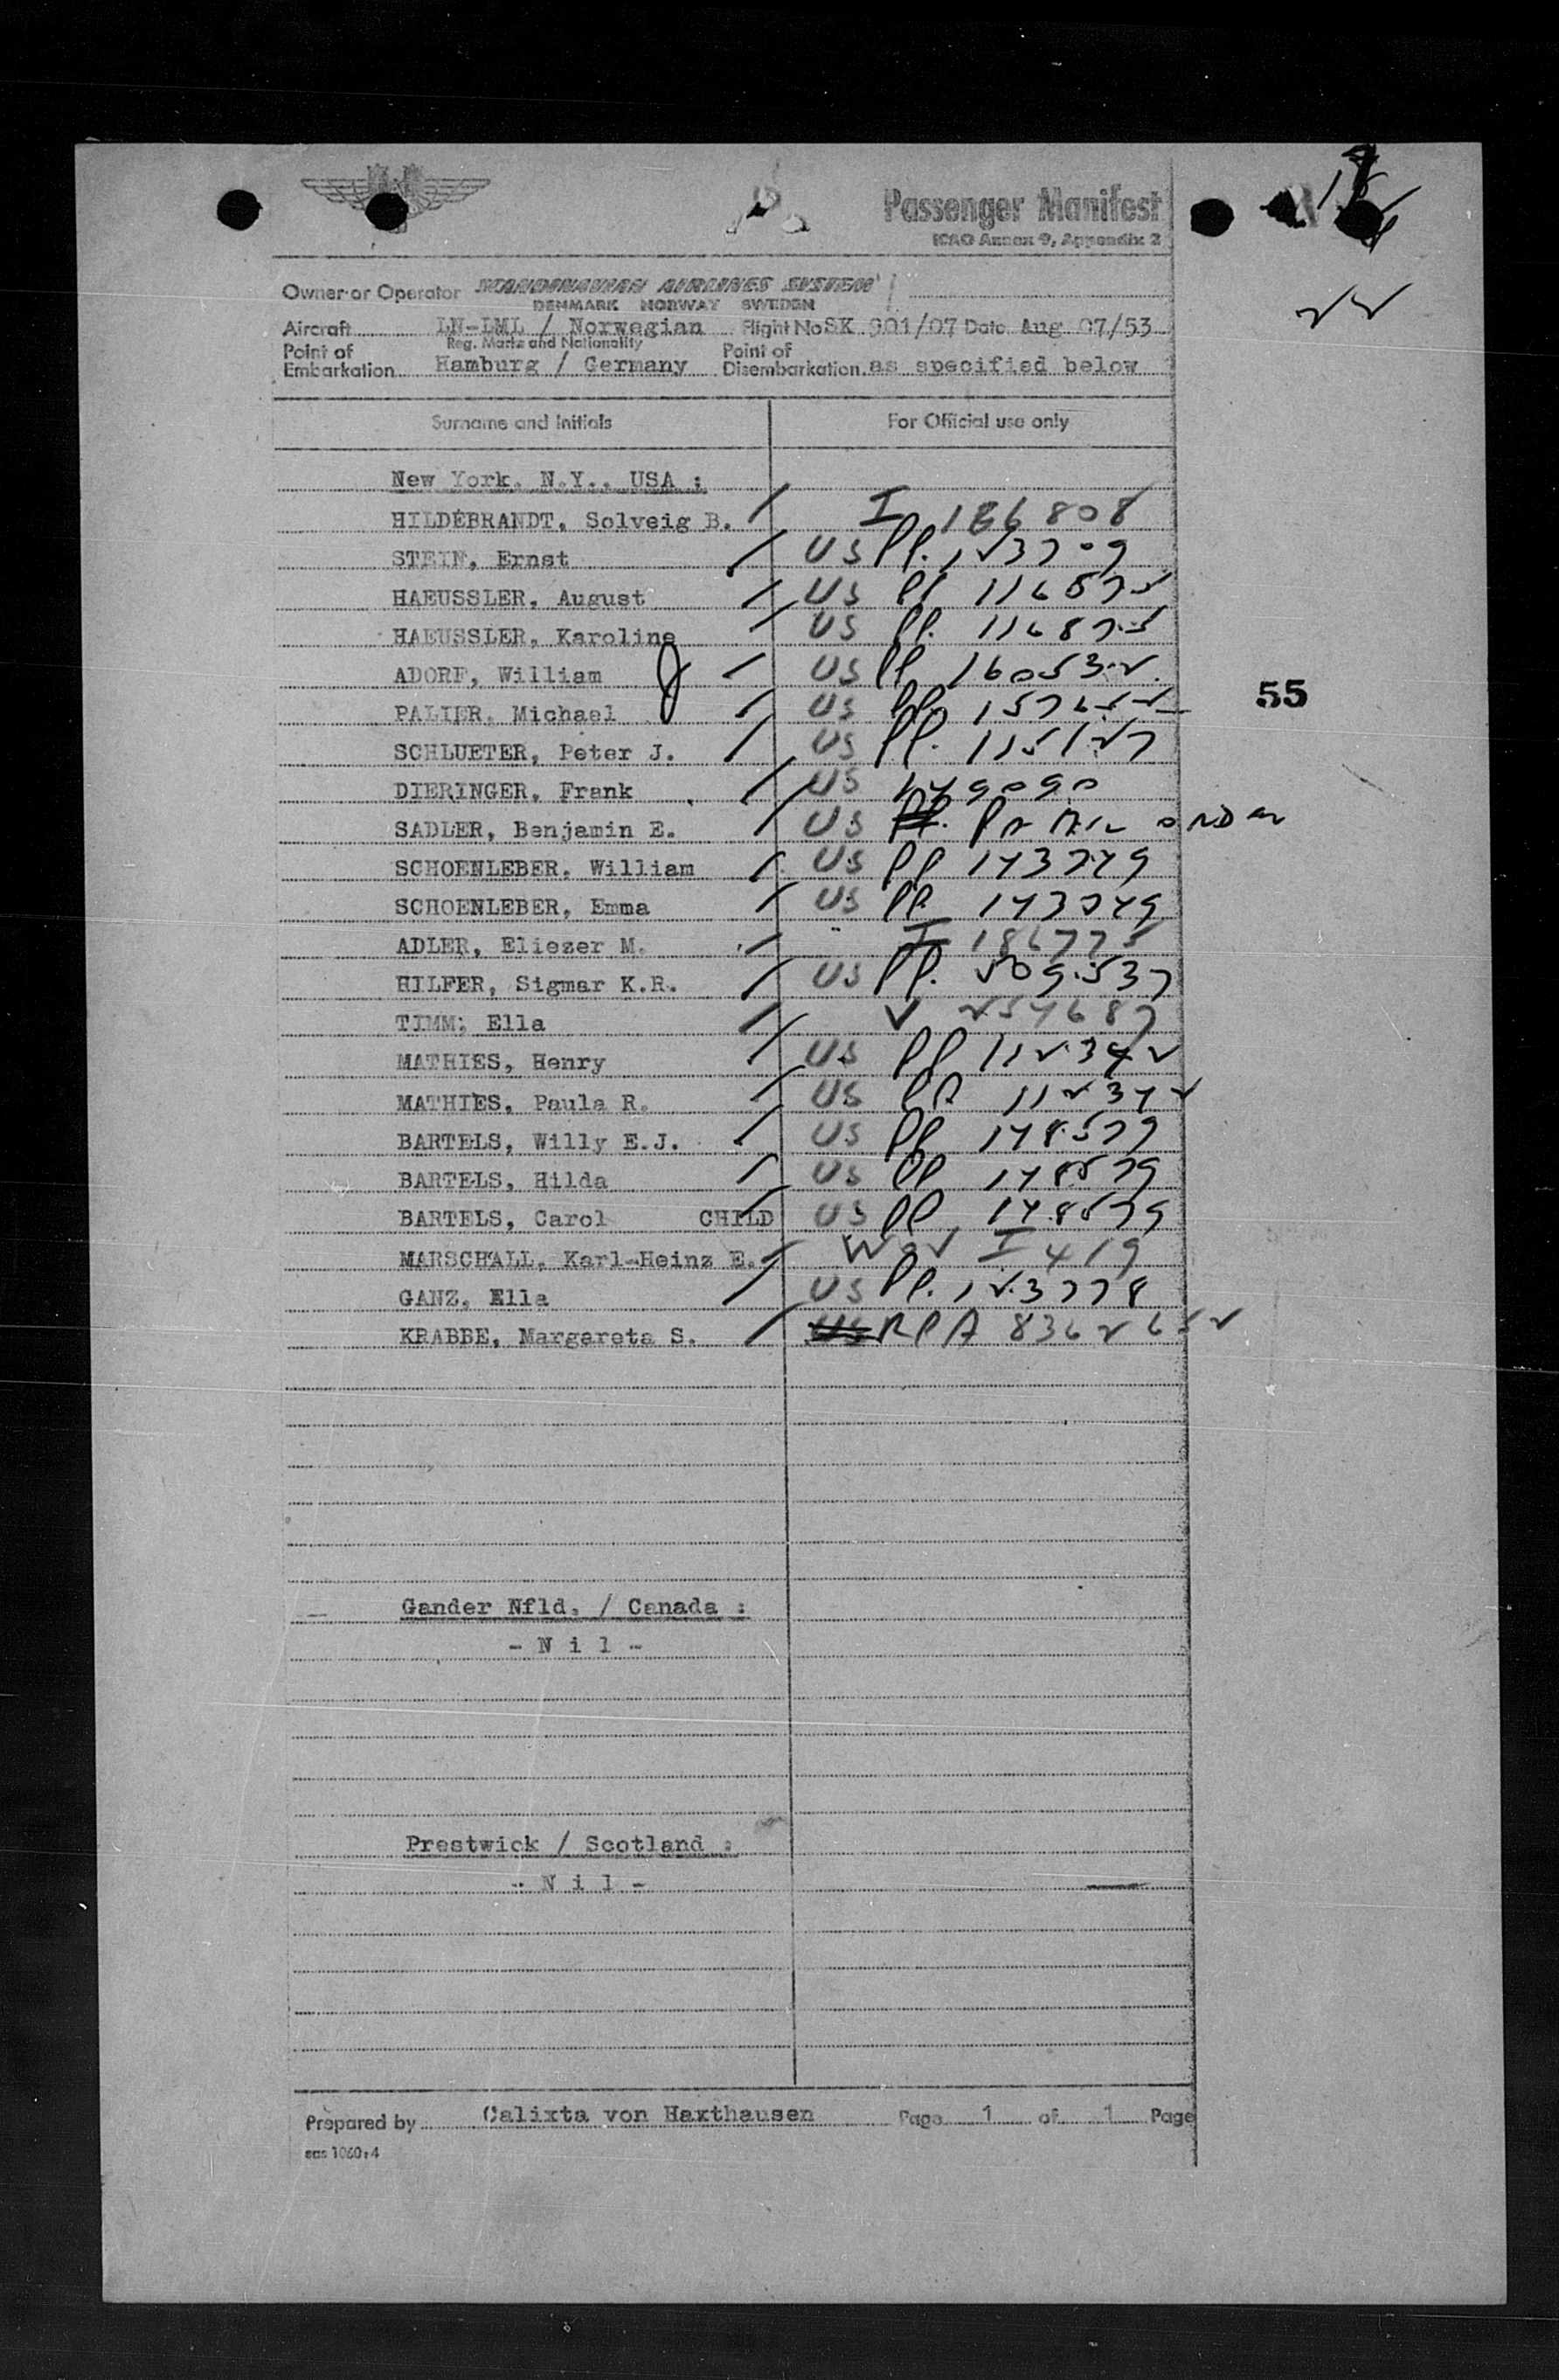 Passenger Manifest
ICAO Annex 9, Appendix 2
Owner or Operator SCANDINAVIAN AIRLINES SYSTEM
DENMARK NORWAY SWEDEN
Aircraft LN-LML / Norwegian Flight No SK 901/07 Date Aug 07/53
Reg. Marks and Nationality
Point of Embarkation Hamburg / Germany Point of Disembarkation as specified below
Surname and Initials For Official use only
New York, N.Y., USA :
HILDEBRANDT, Solveig B. I 186808
STEIN, Ernst US PP. 123709
HAEUSSLER, August US PP 116875
HAEUSSLER, Karoline US PP. 116875
ADORF, William US PP 160532
55
PALIER, Michael US PP.
SCHLUETER, Peter J. US PP. 115127
DIERINGER, Frank US 149090
SADLER, Benjamin E. US ORDER
SCHOENLEBER, William US PP 143749
SCHOENLEBER, Emma US PP 143749
ADLER, Eliezer M. I 186775
HILFER, Sigmar K.R. US PP. 509537
TIMM, Ella V 254687
MATHIES, Henry US PP 112342
MATHIES, Paula R. US PP 112342
BARTELS, Willy E.J. US PP 148579
BARTELS, Hilda US PP 148579
BARTELS, Carol CHILD US PP 148579
MARSCHALL, Karl-Heinz E. I 419
GANZ, Ella US PP. 123778
KRABBE, Margareta S. US A
Gander Nfld. / Canada :
- N i l -
Prestwick / Scotland :
- N i l -
Prepared by Calixta von Haxthausen Page 1 of 1 Page
sas 1060:4